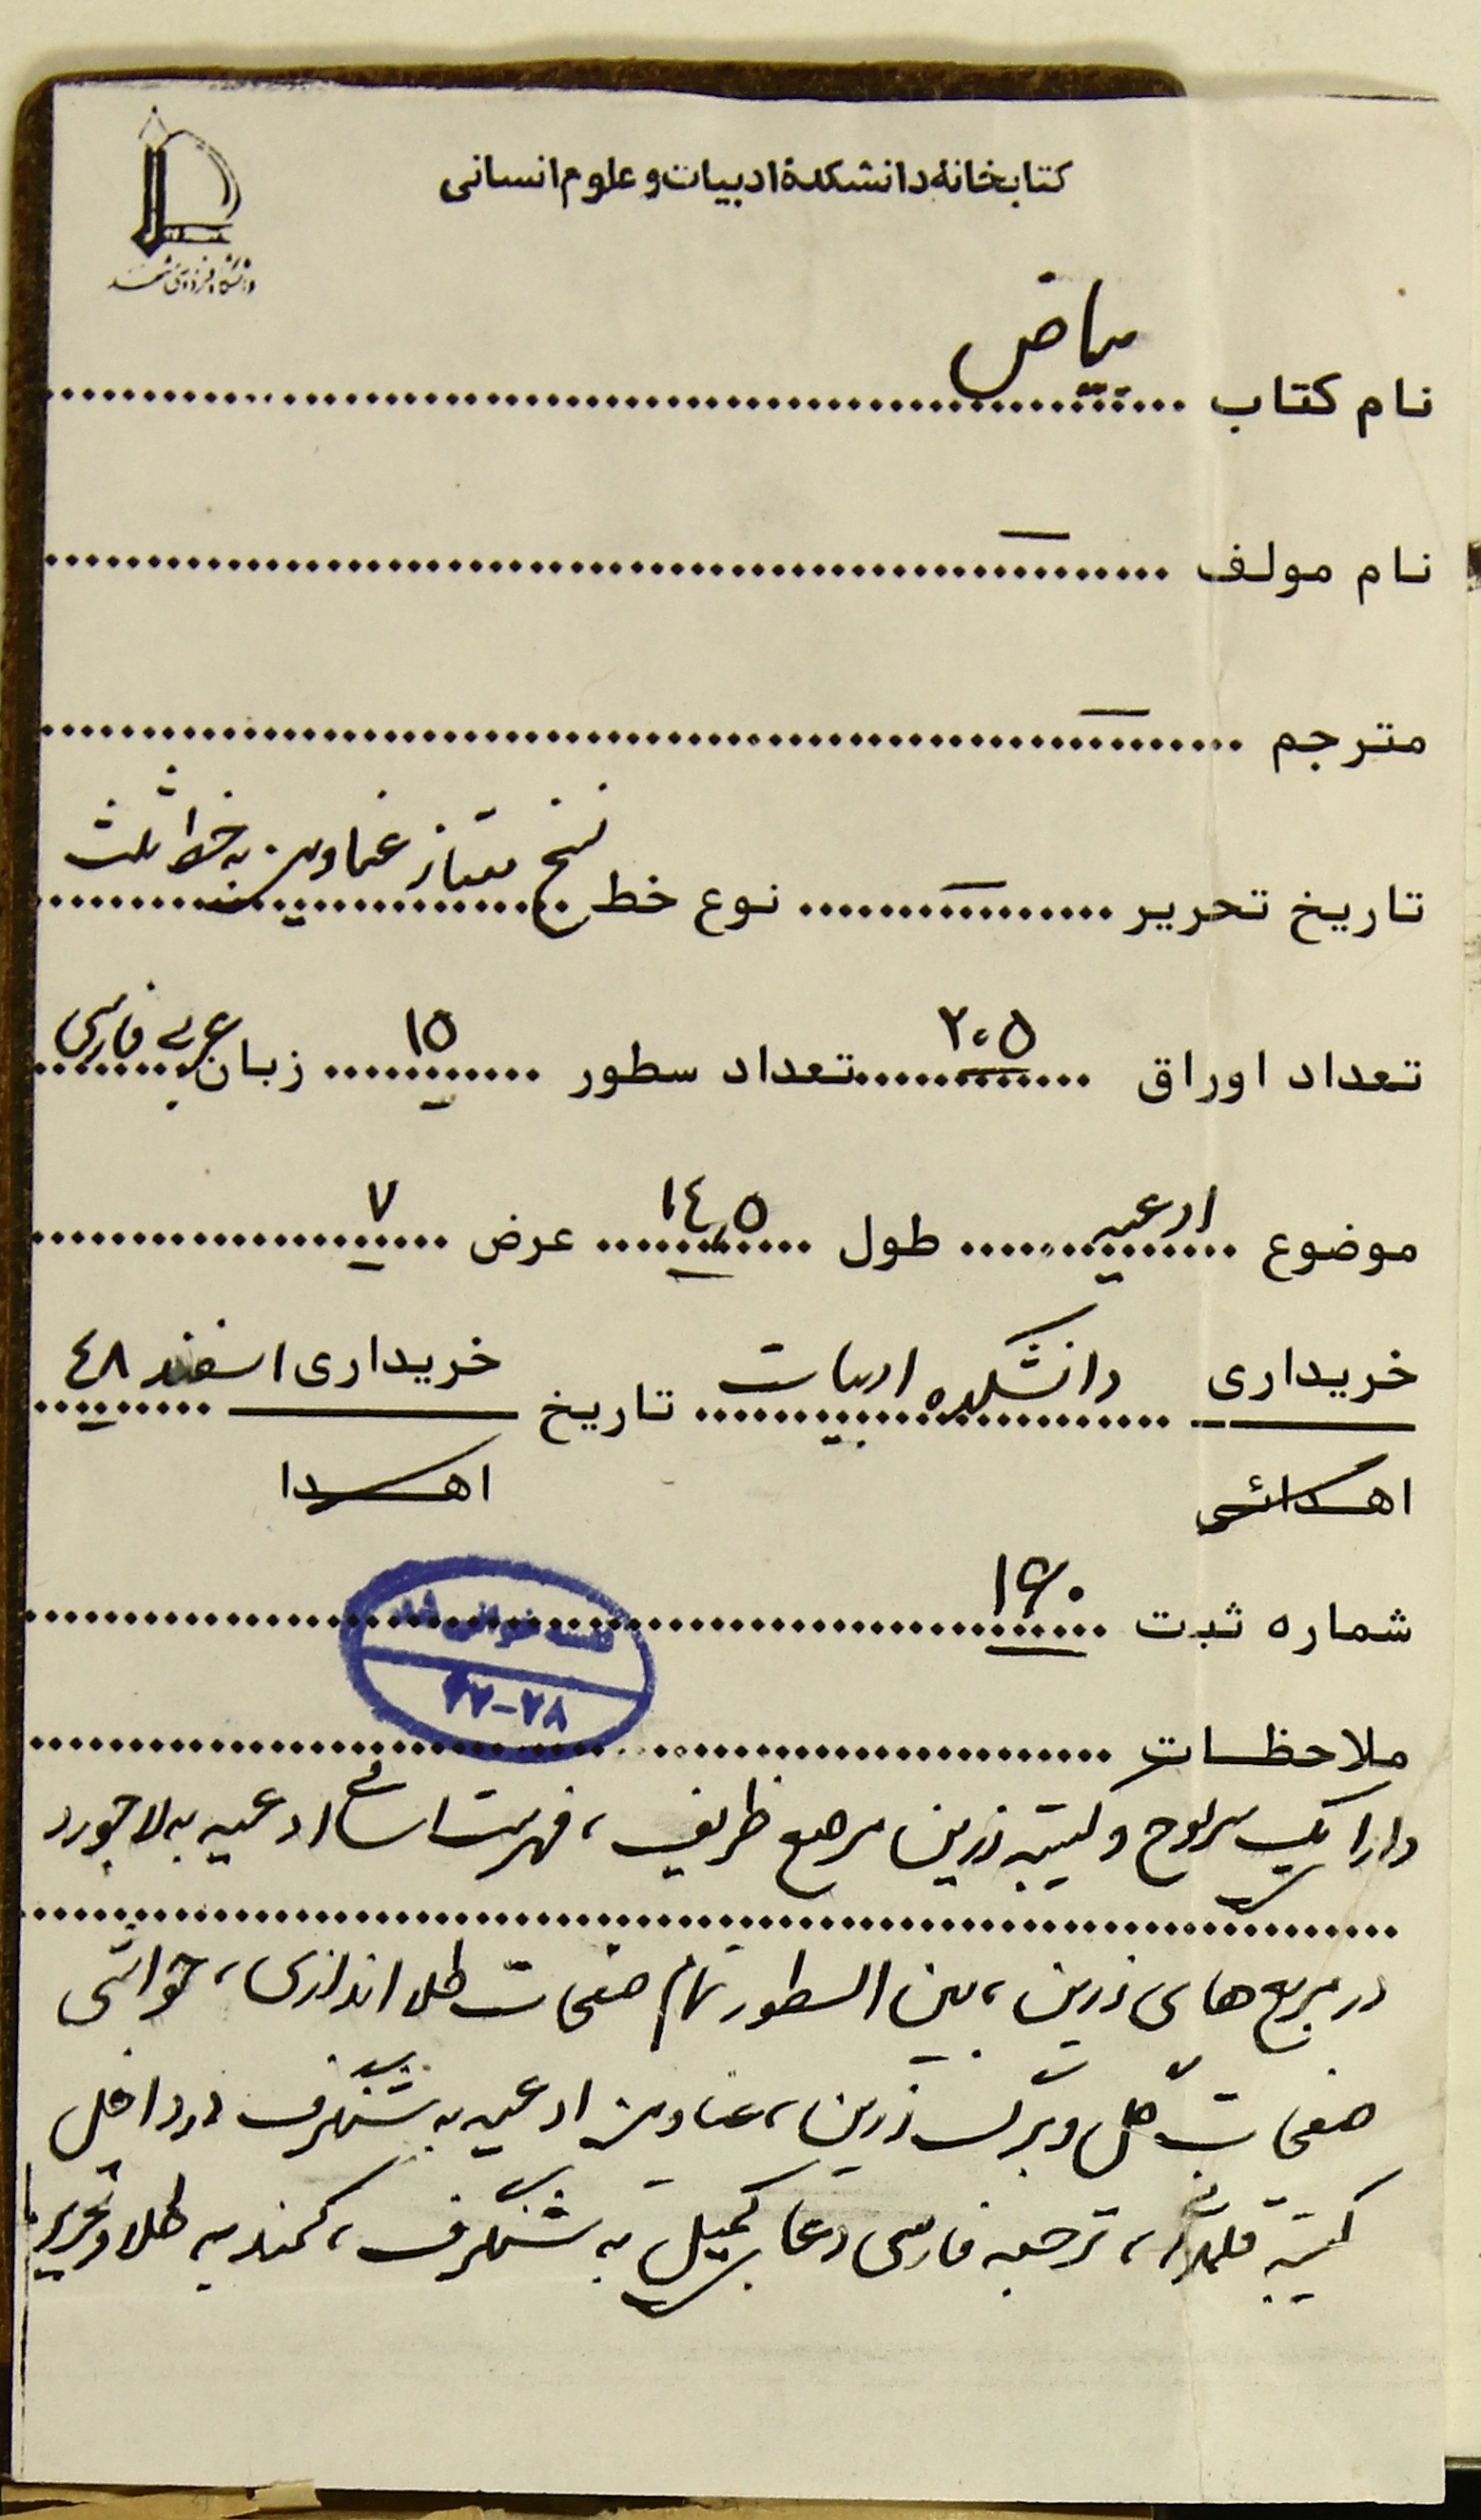 کتابخانهٔ دانشکدهٔ ادبیات و علوم انسانی
دانشگاه فردوسی مشهد
نام کتاب بیاض
نام مولف —
مترجم —
تاریخ تحریر — نوع خط نسخ ممتاز عناوین به خط ثلث
تعداد اوراق ۲۰۵ تعداد سطور ۱۵ زبان عربی فارسی
موضوع ادعیه طول ۱۴٫۵ عرض ۷
خریداری دانشکده ادبیات تاریخ خریداری اسفند ۴۸
اهدائی اهدا
شماره ثبت ۱۶۰
۲۸-۲۷
ملاحظات
دارای یک سرلوح و کتیبه زرین مرصع ظریف، فهرست اسامی ادعیه به لاجورد
در مربع های زرین، بین السطور تمام صفحات طلا اندازی، حواشی
صفحات گل و برگ زرین، عناوین ادعیه به شنگرف در داخل
کتیبه، ترجمه فارسی دعای کمیل به شنگرف، کمند به طلا و تحریر